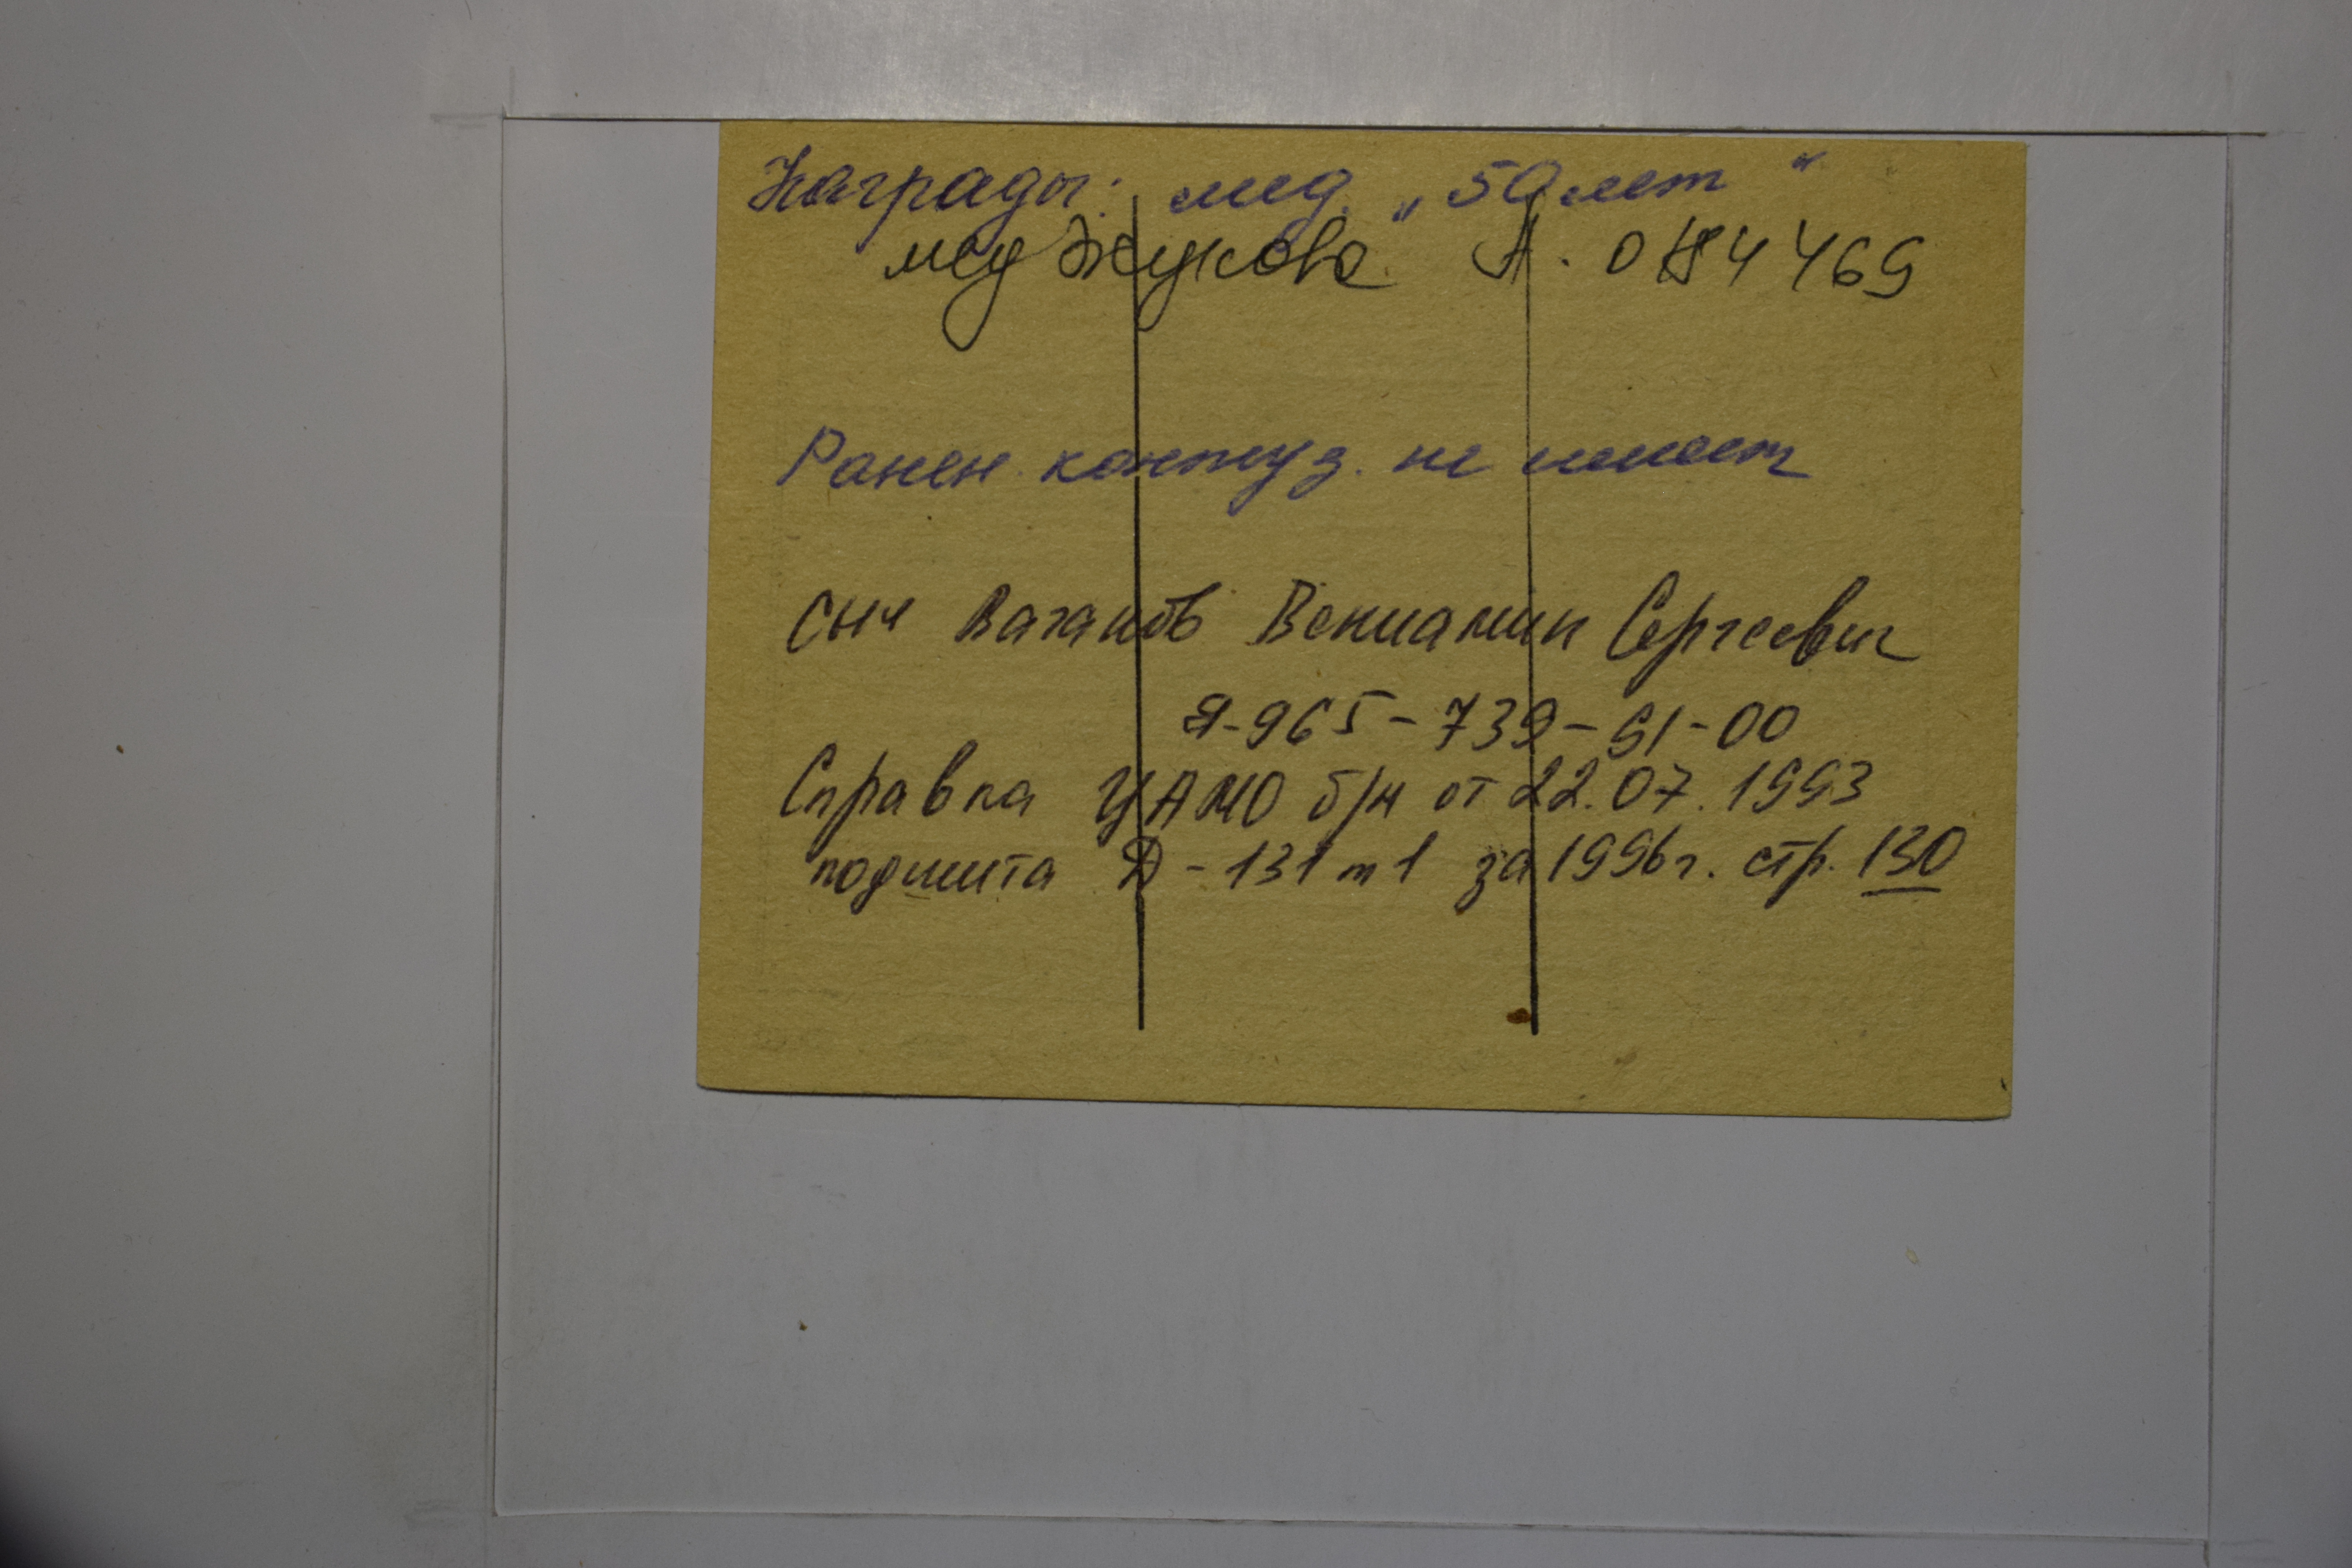 Награды: мед. „50 лет"
мед Жукова А.
Ранен. контуз. не имеет
сын Ваганов Вениамин Сергеевич
8-965-739-91-00
Справка ЦАМО б/н от 22.07.1993
подшита Д-131 т 1 за 1996г. стр. 130